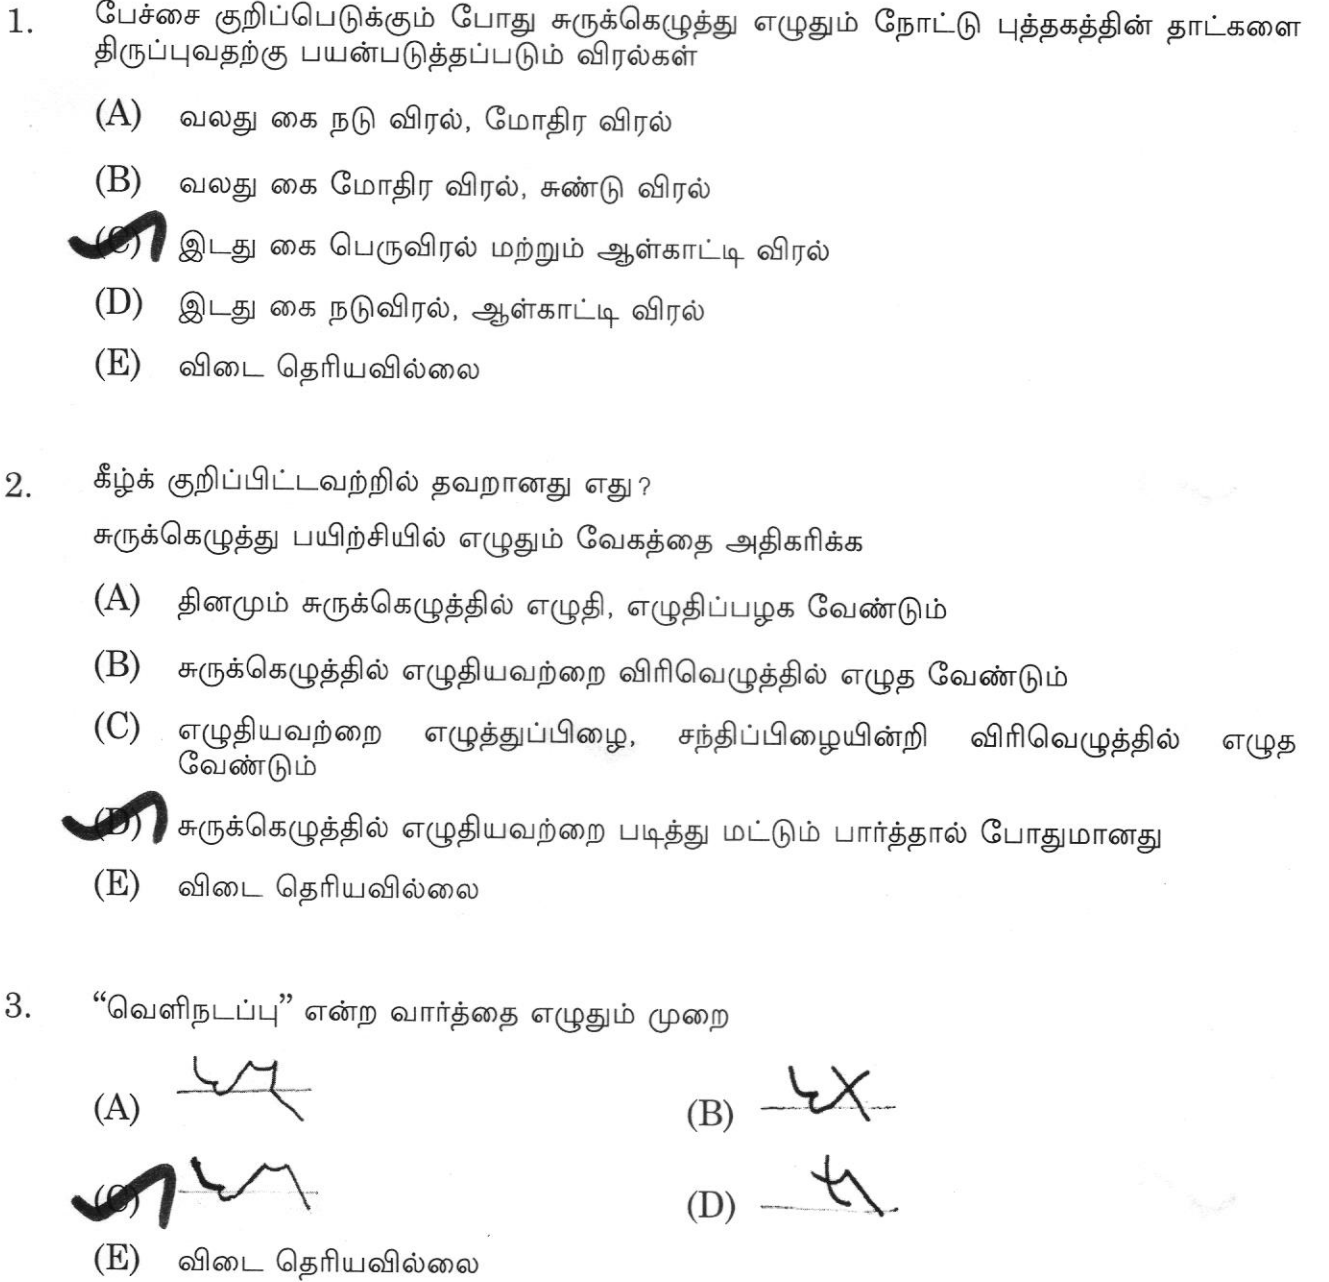 1. பேச்சை குறிப்பெடுக்கும் போது சுருக்கெழுத்து எழுதும் நோட்டு புத்தகத்தின் தாட்களை
திருப்புவதற்கு பயன்படுத்தப்படும் விரல்கள்
(A) வலது கை நடு விரல், மோதிர விரல்
(B) வலது கை மோதிர விரல், சுண்டு விரல்
(C) இடது கை பெருவிரல் மற்றும் ஆள்காட்டி விரல்
(D) இடது கை நடுவிரல், ஆள்காட்டி விரல்
(E) விடை தெரியவில்லை
2. கீழ்க் குறிப்பிட்டவற்றில் தவறானது எது?
சுருக்கெழுத்து பயிற்சியில் எழுதும் வேகத்தை அதிகரிக்க
(A) தினமும் சுருக்கெழுத்தில் எழுதி, எழுதிப்பழக வேண்டும்
(B) சுருக்கெழுத்தில் எழுதியவற்றை விரிவெழுத்தில் எழுத வேண்டும்
(C) எழுதியவற்றை எழுத்துப்பிழை, சந்திப்பிழையின்றி விரிவெழுத்தில் எழுத
வேண்டும்
(D) சுருக்கெழுத்தில் எழுதியவற்றை படித்து மட்டும் பார்த்தால் போதுமானது
(E) விடை தெரியவில்லை
3. “வெளிநடப்பு” என்ற வார்த்தை எழுதும் முறை
(A) (B)
(C) (D)
(E) விடை தெரியவில்லை